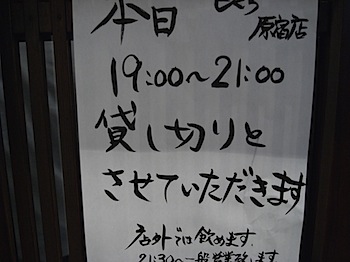 本日
原宿店
19:00~21:00
貸し切りと
させていただきます
店外では飲めます。
21:30~一般営業致します